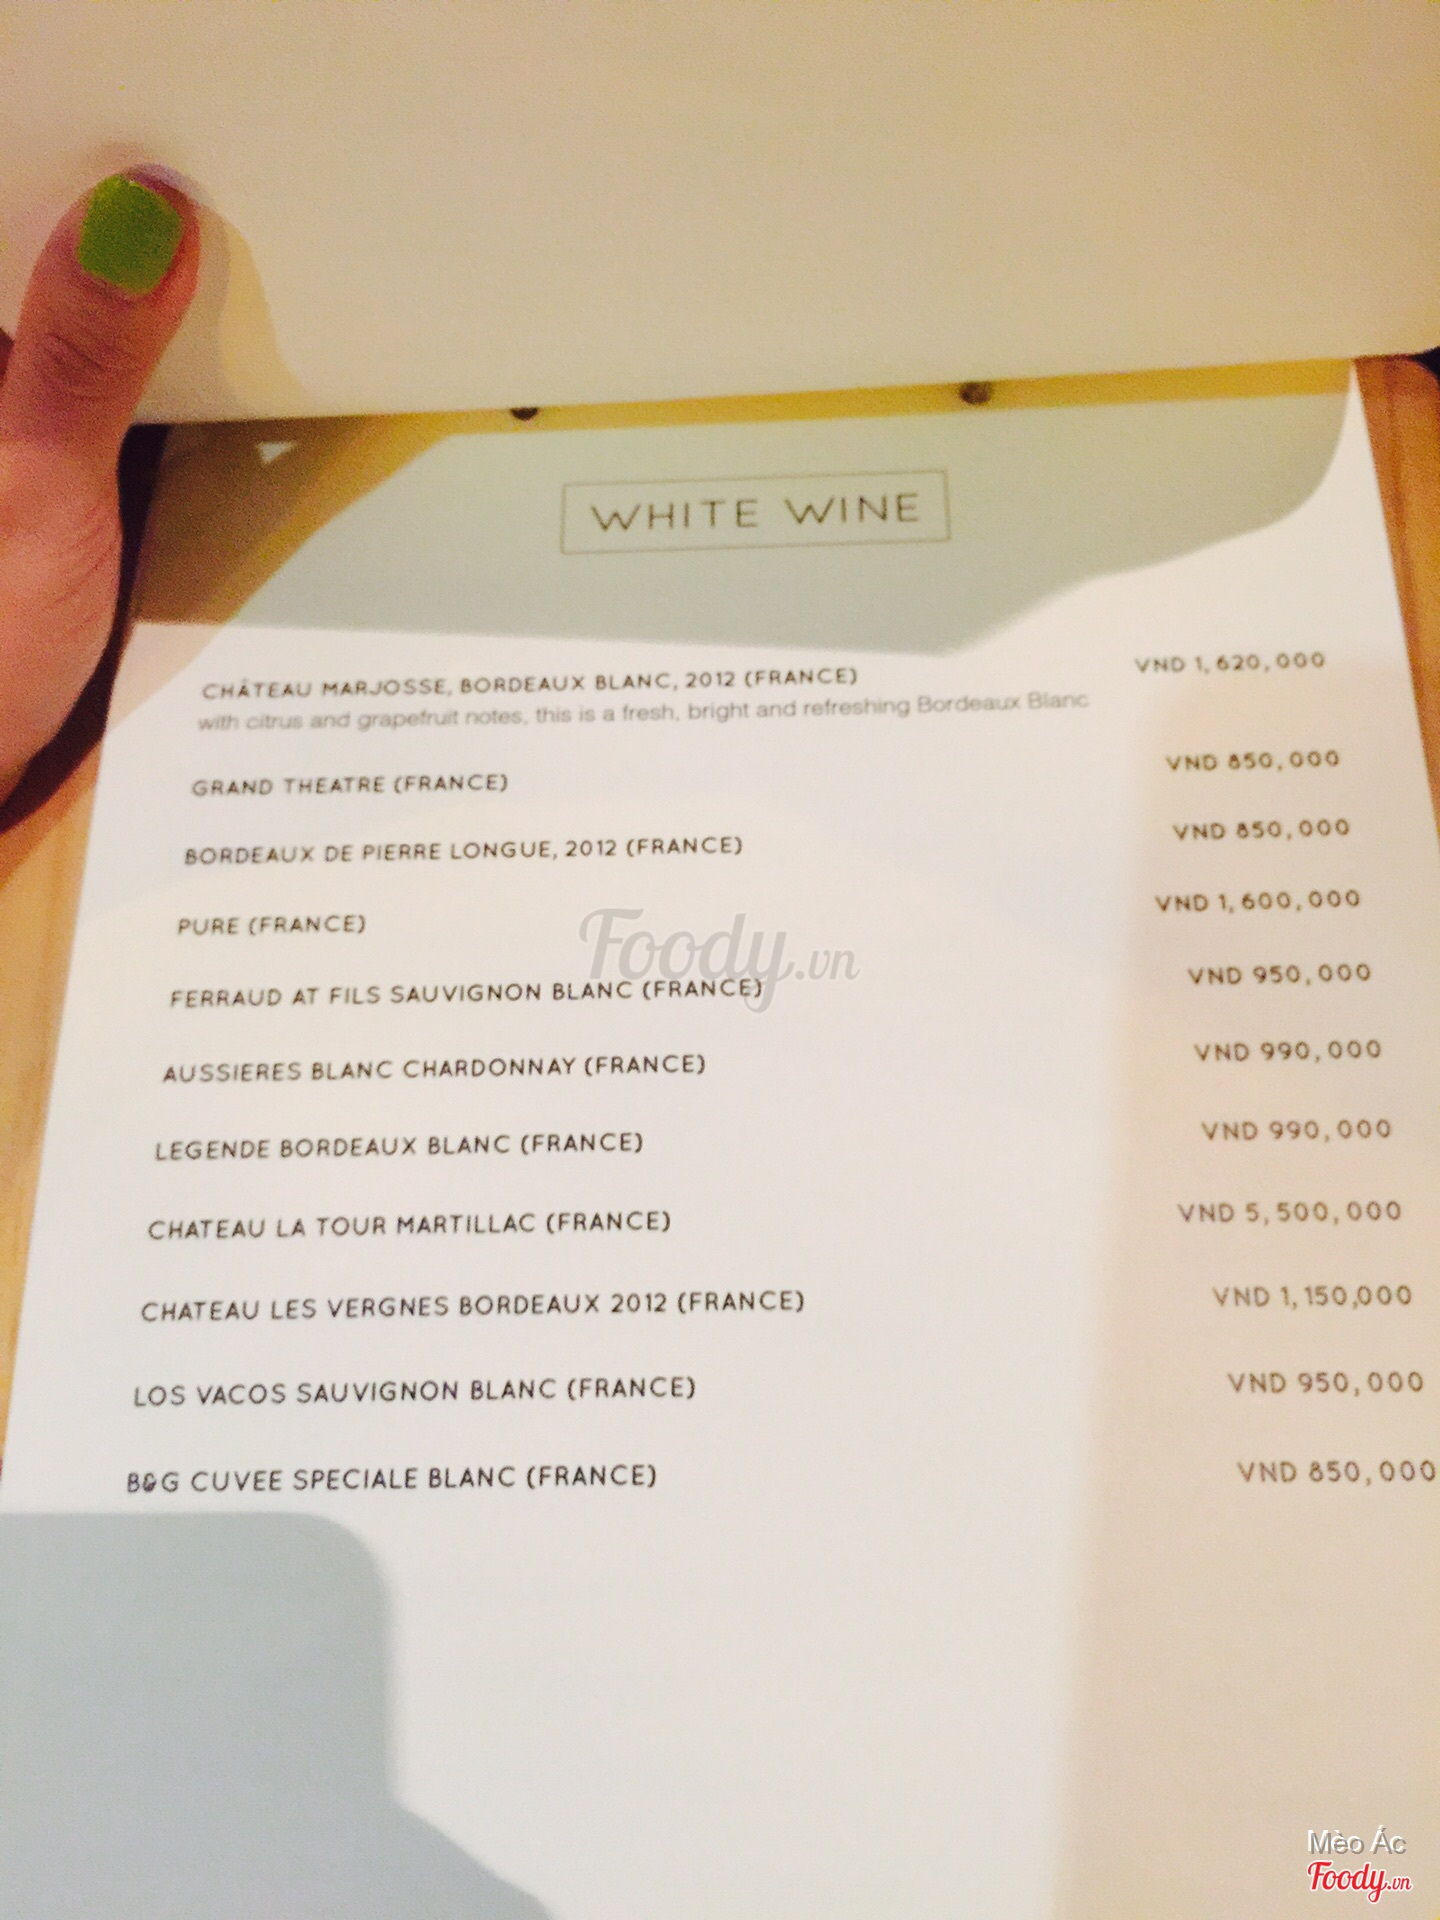 WHITE WINE
CHÂTEAU MARJOSSE, BORDEAUX BLANC, 2012 (FRANCE) VND 1,620,000
with citrus and grapefruit notes, this is a fresh, bright and refreshing Bordeaux Blanc
GRAND THEATRE (FRANCE) VND 850,000
BORDEAUX DE PIERRE LONGUE, 2012 (FRANCE) VND 850,000
PURE (FRANCE) VND 1,600,000
Foody.vn
FERRAUD AT FILS SAUVIGNON BLANC (FRANCE) VND 950,000
AUSSIERES BLANC CHARDONNAY (FRANCE) VND 990,000
LEGENDE BORDEAUX BLANC (FRANCE) VND 990,000
CHATEAU LA TOUR MARTILLAC (FRANCE) VND 5,500,000
CHATEAU LES VERGNES BORDEAUX 2012 (FRANCE) VND 1,150,000
LOS VACOS SAUVIGNON BLANC (FRANCE) VND 950,000
B&G CUVEE SPECIALE BLANC (FRANCE) VND 850,000
Mèo Ác
Foody.vn